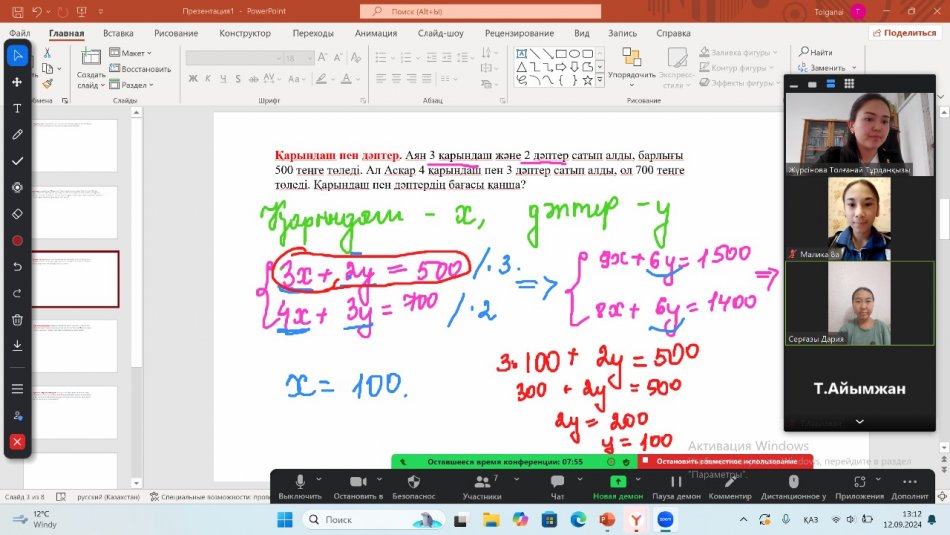 Презентация1 - PowerPoint
Поиск (Alt+Ы)
Tolganai T
Файл Главная Вставка Рисование Конструктор Переходы Анимация Слайд-шоу Рецензирование Вид Запись Справка Поделиться
Создать слайд
Макет
Восстановить
Раздел
18
Упорядочить
Экспресс-стили
Заливка фигуры
Контур фигуры
Эффекты фигуры
Найти
Заменить
Слайды Шрифт Абзац Рисование
Қарындаш пен дәптер. Аян 3 қарындаш және 2 дәптер сатып алды, барлығы
500 теңге төледі. Ал Асқар 4 қарындаш пен 3 дәптер сатып алды, ол 700 теңге
төледі. Қарындаш пен дәптердің бағасы қанша?
Қарындаш - x, дәптер - y
3x + 2y = 500 / · 3.
4x + 3y = 700 / · 2
=>
9x + 6y = 1500
8x + 6y = 1400
=>
x = 100.
3·100 + 2y = 500
300 + 2y = 500
2y = 200
y = 100
Жүрсінова Толғанай Тұрданқызы
Малика ва
Серғазы Дария
Т.Айымжан
Активация Windows
Оставшееся время конференции: 07:55
Остановить совместное использование
перейдите в раздел
"Параметры".
Выключить
Остановить в
Безопаснос
Участники
7
Чат
Новая демон
Пауза демон
Комментир
Дистанционное у
Приложения
Дополнит
Слайд 3 из 8
русский (Казахстан)
Специальные возможности: пров
12°C
Windy
Поиск
ҚАЗ
13:12
12.09.2024